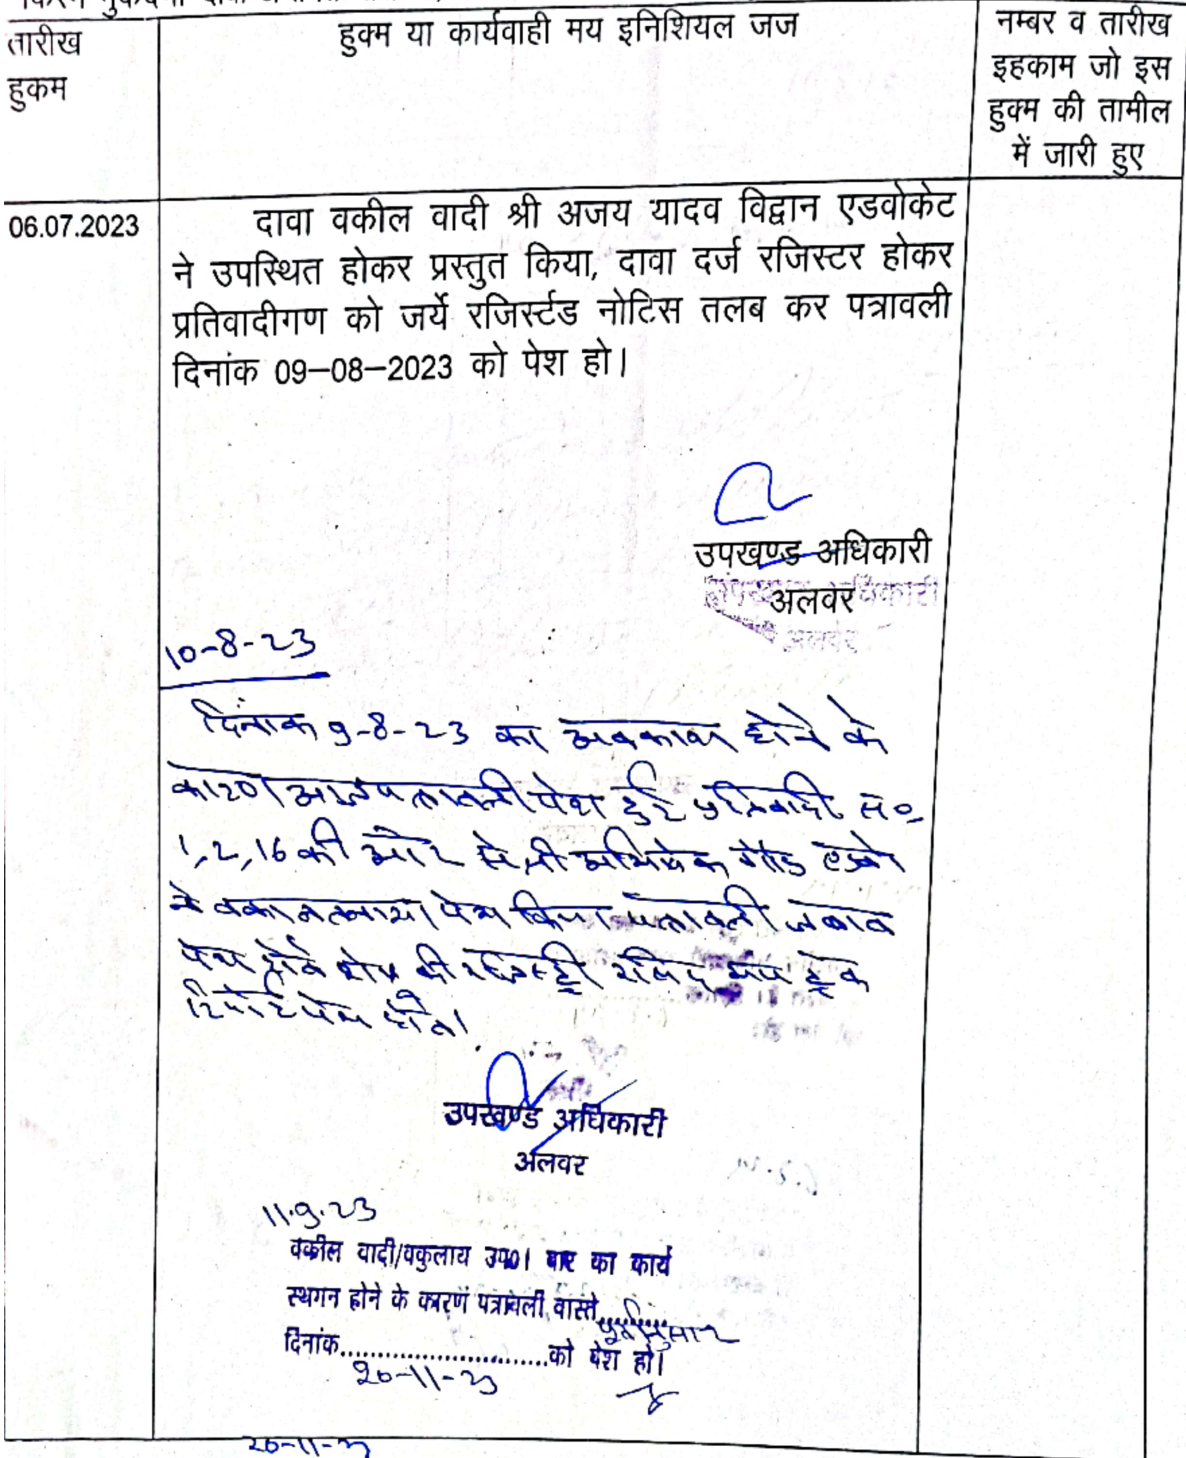 तारीख
हुकम
हुक्म या कार्यवाही मय इनिशियल जज
नम्बर व तारीख
इहकाम जो इस
हुक्म की तामील
में जारी हुए
06.07.2023
दावा वकील वादी श्री अजय यादव विद्वान एडवोकेट
ने उपस्थित होकर प्रस्तुत किया, दावा दर्ज रजिस्टर होकर
प्रतिवादीगण को जर्ये रजिर्स्टड नोटिस तलब कर पत्रावली
दिनांक 09–08–2023 को पेश हो।
उपखण्ड अधिकारी
अलवर
10-8-23
दिनांक 9-8-23 का अवकाश होने के
कारण आज पत्रावली पेश हुई प्रतिवादी सं०
1,2,16 की ओर से श्री अभिषेक गौड एडवो
ने वकालतनामा पेश किया पत्रावली जवाब
पेश होवे शेष की रजिस्ट्री रसिद मय ट्रेक
रिपोर्ट पेश होवे।
उपखण्ड अधिकारी
अलवर
11.9.23
वकील वादी/वकुलाय उप०। बार का कार्य
स्थगन होने के कारण पत्रावली वास्ते पूर्वानुसार
दिनांक 20-11-23 को पेश हो।
20-11-23